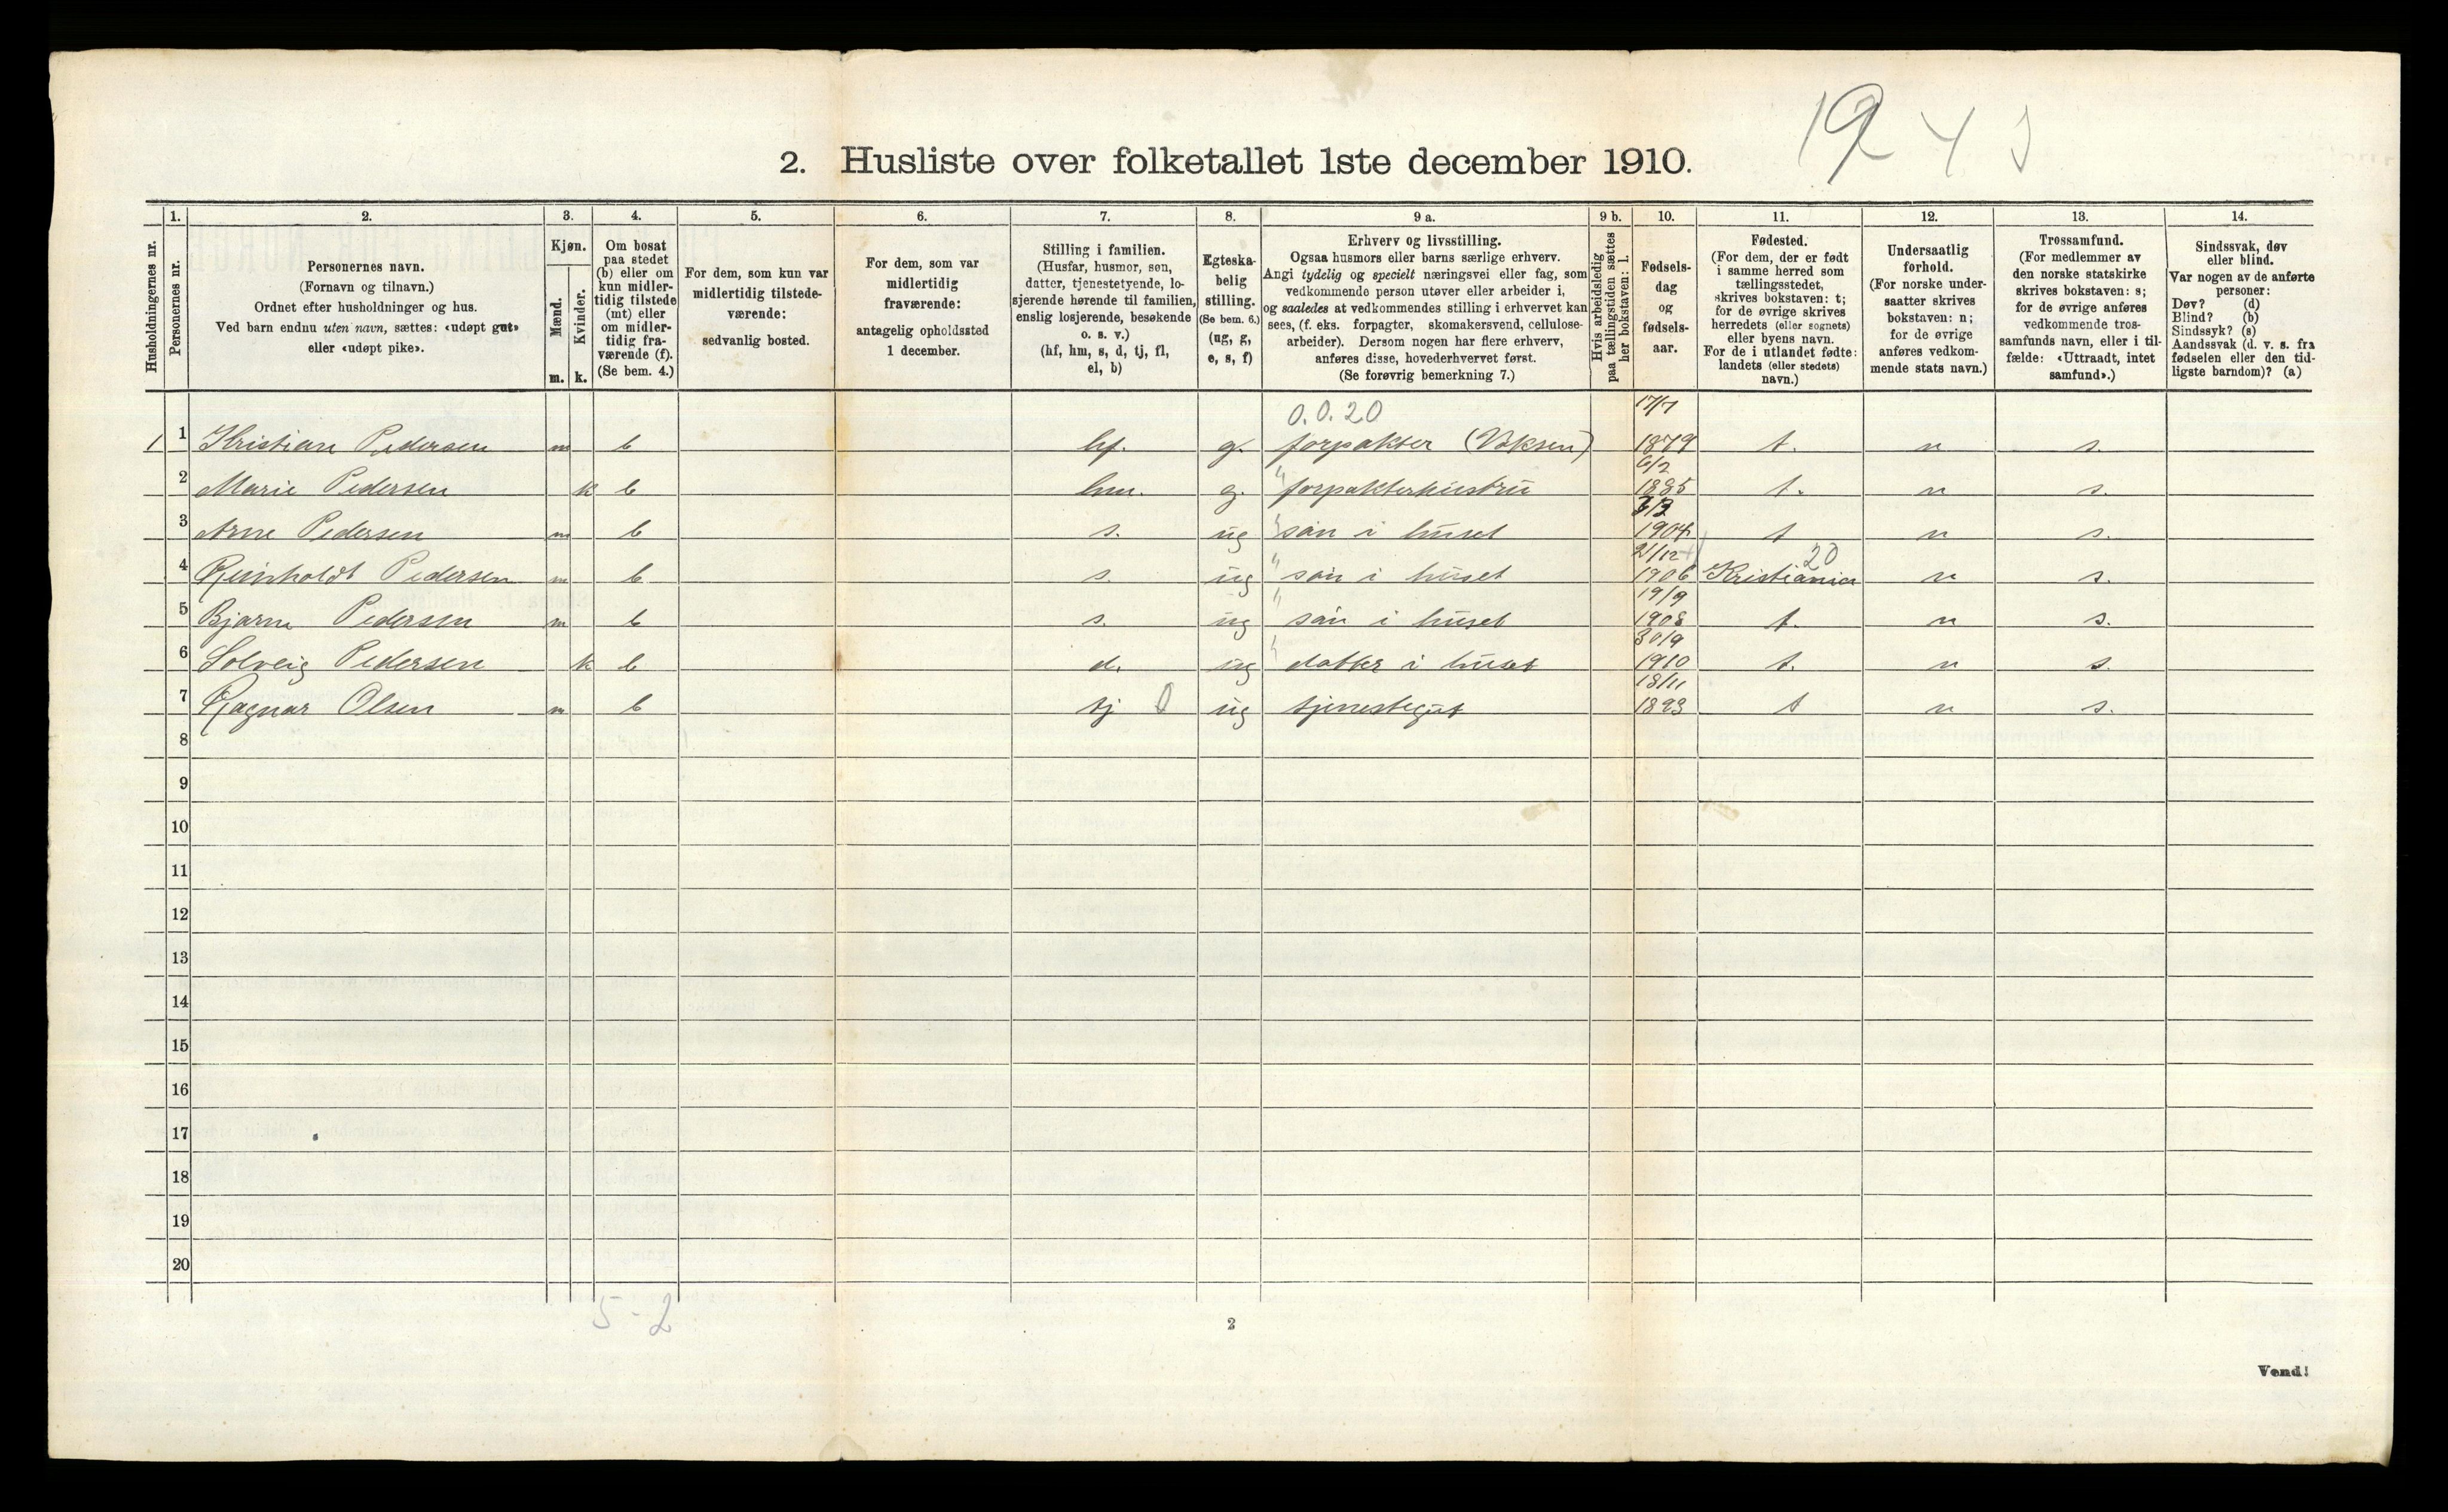 19 4 1
2. Husliste over folketallet 1ste december 1910.
Husholdningernes nr.
1.
Personernes nr.
2.
Personernes navn.
(Fornavn og tilnavn.)
Ordnet efter husholdninger og hus.
Ved barn endnu uten navn, sættes: «udøpt gut»
eller «udøpt pike».
3.
Kjøn.
Mænd.
Kvinder.
m. k.
4.
Om bosat
paa stedet
(b) eller om
kun midler-
tidig tilstede
(mt) eller
om midler-
tidig fra-
værende (f).
(Se bem. 4.)
5.
For dem, som kun var
midlertidig tilstede-
værende:
sedvanlig bosted.
6.
For dem, som var
midlertidig
fraværende:
antagelig opholdssted
1 december.
7.
Stilling i familien.
(Husfar, husmor, søn,
datter, tjenestetyende, lo-
sjerende hørende til familien,
enslig losjerende, besøkende
o. s. v.)
(hf, hm, s, d, tj, fl,
el, b)
8.
Egteska-
belig
stilling.
(Se bem. 6.)
(ug, g,
e, s, f)
9 a.
Erhverv og livsstilling.
Ogsaa husmors eller barns særlige erhverv.
Angi tydelig og specielt næringsvei eller fag, som
vedkommende person utøver eller arbeider i,
og saaledes at vedkommendes stilling i erhvervet kan
sees, (f. eks. forpagter, skomakersvend, cellulose-
arbeider). Dersom nogen har flere erhverv,
anføres disse, hovederhvervet først.
(Se forøvrig bemerkning 7.)
9 b.
Hvis arbeidsledig
paa tællingstiden sættes
her bokstaven: l.
10.
Fødsels-
dag
og
fødsels-
aar.
11.
Fødested.
(For dem, der er født
i samme herred som
tællingsstedet,
skrives bokstaven: t;
for de øvrige skrives
herredets (eller sognets)
eller byens navn.
For de i utlandet fødte:
landets (eller stedets)
navn.)
12.
Undersaatlig
forhold.
(For norske under-
saatter skrives
bokstaven: n;
for de øvrige
anføres vedkom-
mende stats navn.)
13.
Trossamfund.
(For medlemmer av
den norske statskirke
skrives bokstaven: s;
for de øvrige anføres
vedkommende tros-
samfunds navn, eller i til-
fælde: «Uttraadt, intet
samfund».)
14.
Sindssvak, døv
eller blind.
Var nogen av de anførte
personer:
Døv? (d)
Blind? (b)
Sindssyk? (s)
Aandssvak (d. v. s. fra
fødselen eller den tid-
ligste barndom)? (a)
0.0.20 17/7
1 1 Kristian Pedersen m b hf. g. forpakter (Voksen) 1879 t. n s.
6/2
2 Marie Pedersen k b hm. g. " forpakterhustru 1885 t. n s.
3 Arne Pedersen m b s. ug " søn i huset 1904 t n s.
21/12 20
4 Reinholdt Pedersen m b s. ug " søn i huset 1906 Kristiania n s.
19/9
5 Bjarne Pedersen m b s. ug " søn i huset 1908 t. n s.
30/9
6 Solveig Pedersen k b d. ug " datter i huset 1910 t. n s.
18/11
7 Ragnar Olsen m b tj 0 ug tjenestegut 1893 t n s.
8
9
10
11
12
13
14
15
16
17
18
19
20
5-2
2
Vend!